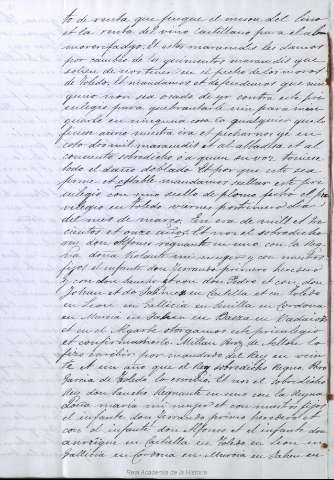 to de renta que fuegue el meson del lino
et la renta del vino Castellano para el al
moxerifadgo. Et estos maravedis les damos
por cambio de los quinientos maravedis que
solien de nos tener en el pecho de los moros
de Toledo. Et mandamos et defendemos que nin
guno non sea osado de yr contra este pri
uilegio para quebrantarle nin para min
guarlo en ninguna cosa ca qualquier que lo
fiziese aurie nuestra ira et pecharnos ye en
coto dos mil maravedis et al abadesa et al
conuento sobredicho o a quien su voz touiese
todo el daño doblado. Et por que esto sea
firme et estable mandamos sellar este pri
uilegio con nuestro sello de plomo. Fecho el pri
uilegio en Toledo viernes postrimero dia
del mes de março. En era de mill et tre
cientos et onze años. Et nos el sobredicho
rey don Alfonso regnante en uno con la Rey
na doña Yolante mi muger y con nuestros
fijos el infante don Ferrando primero heredero
y con don Sancho et con don Pedro et con don
Johan et do Jahimes en Castella et en Toledo
en Leon en Gallicia en Sevilla en Cordova
en Murcia en Jahen en Baeza en Badaioz
et en el Algarbe otorgamos este privilegio
et confirmamoslo. Millan Perez de Aellon lo
fizo escribir por mandado del Rey en vein
te et un año que el Rey sobredicho Regno. Pero
Garcia de Toledo lo escribio. Et nos el sobredicho
Rey don Sancho Regnante en uno con la Reyna
Doña Maria mi muger et con nuestros fijos
el infante don Ferrando primero heredero et
con el infante don Alfonso et el infante don
Anrrique en Castella en Toledo en Leon en
Gallicia en Cordova en Murcia en Jahen en
Real Academia de la Historia